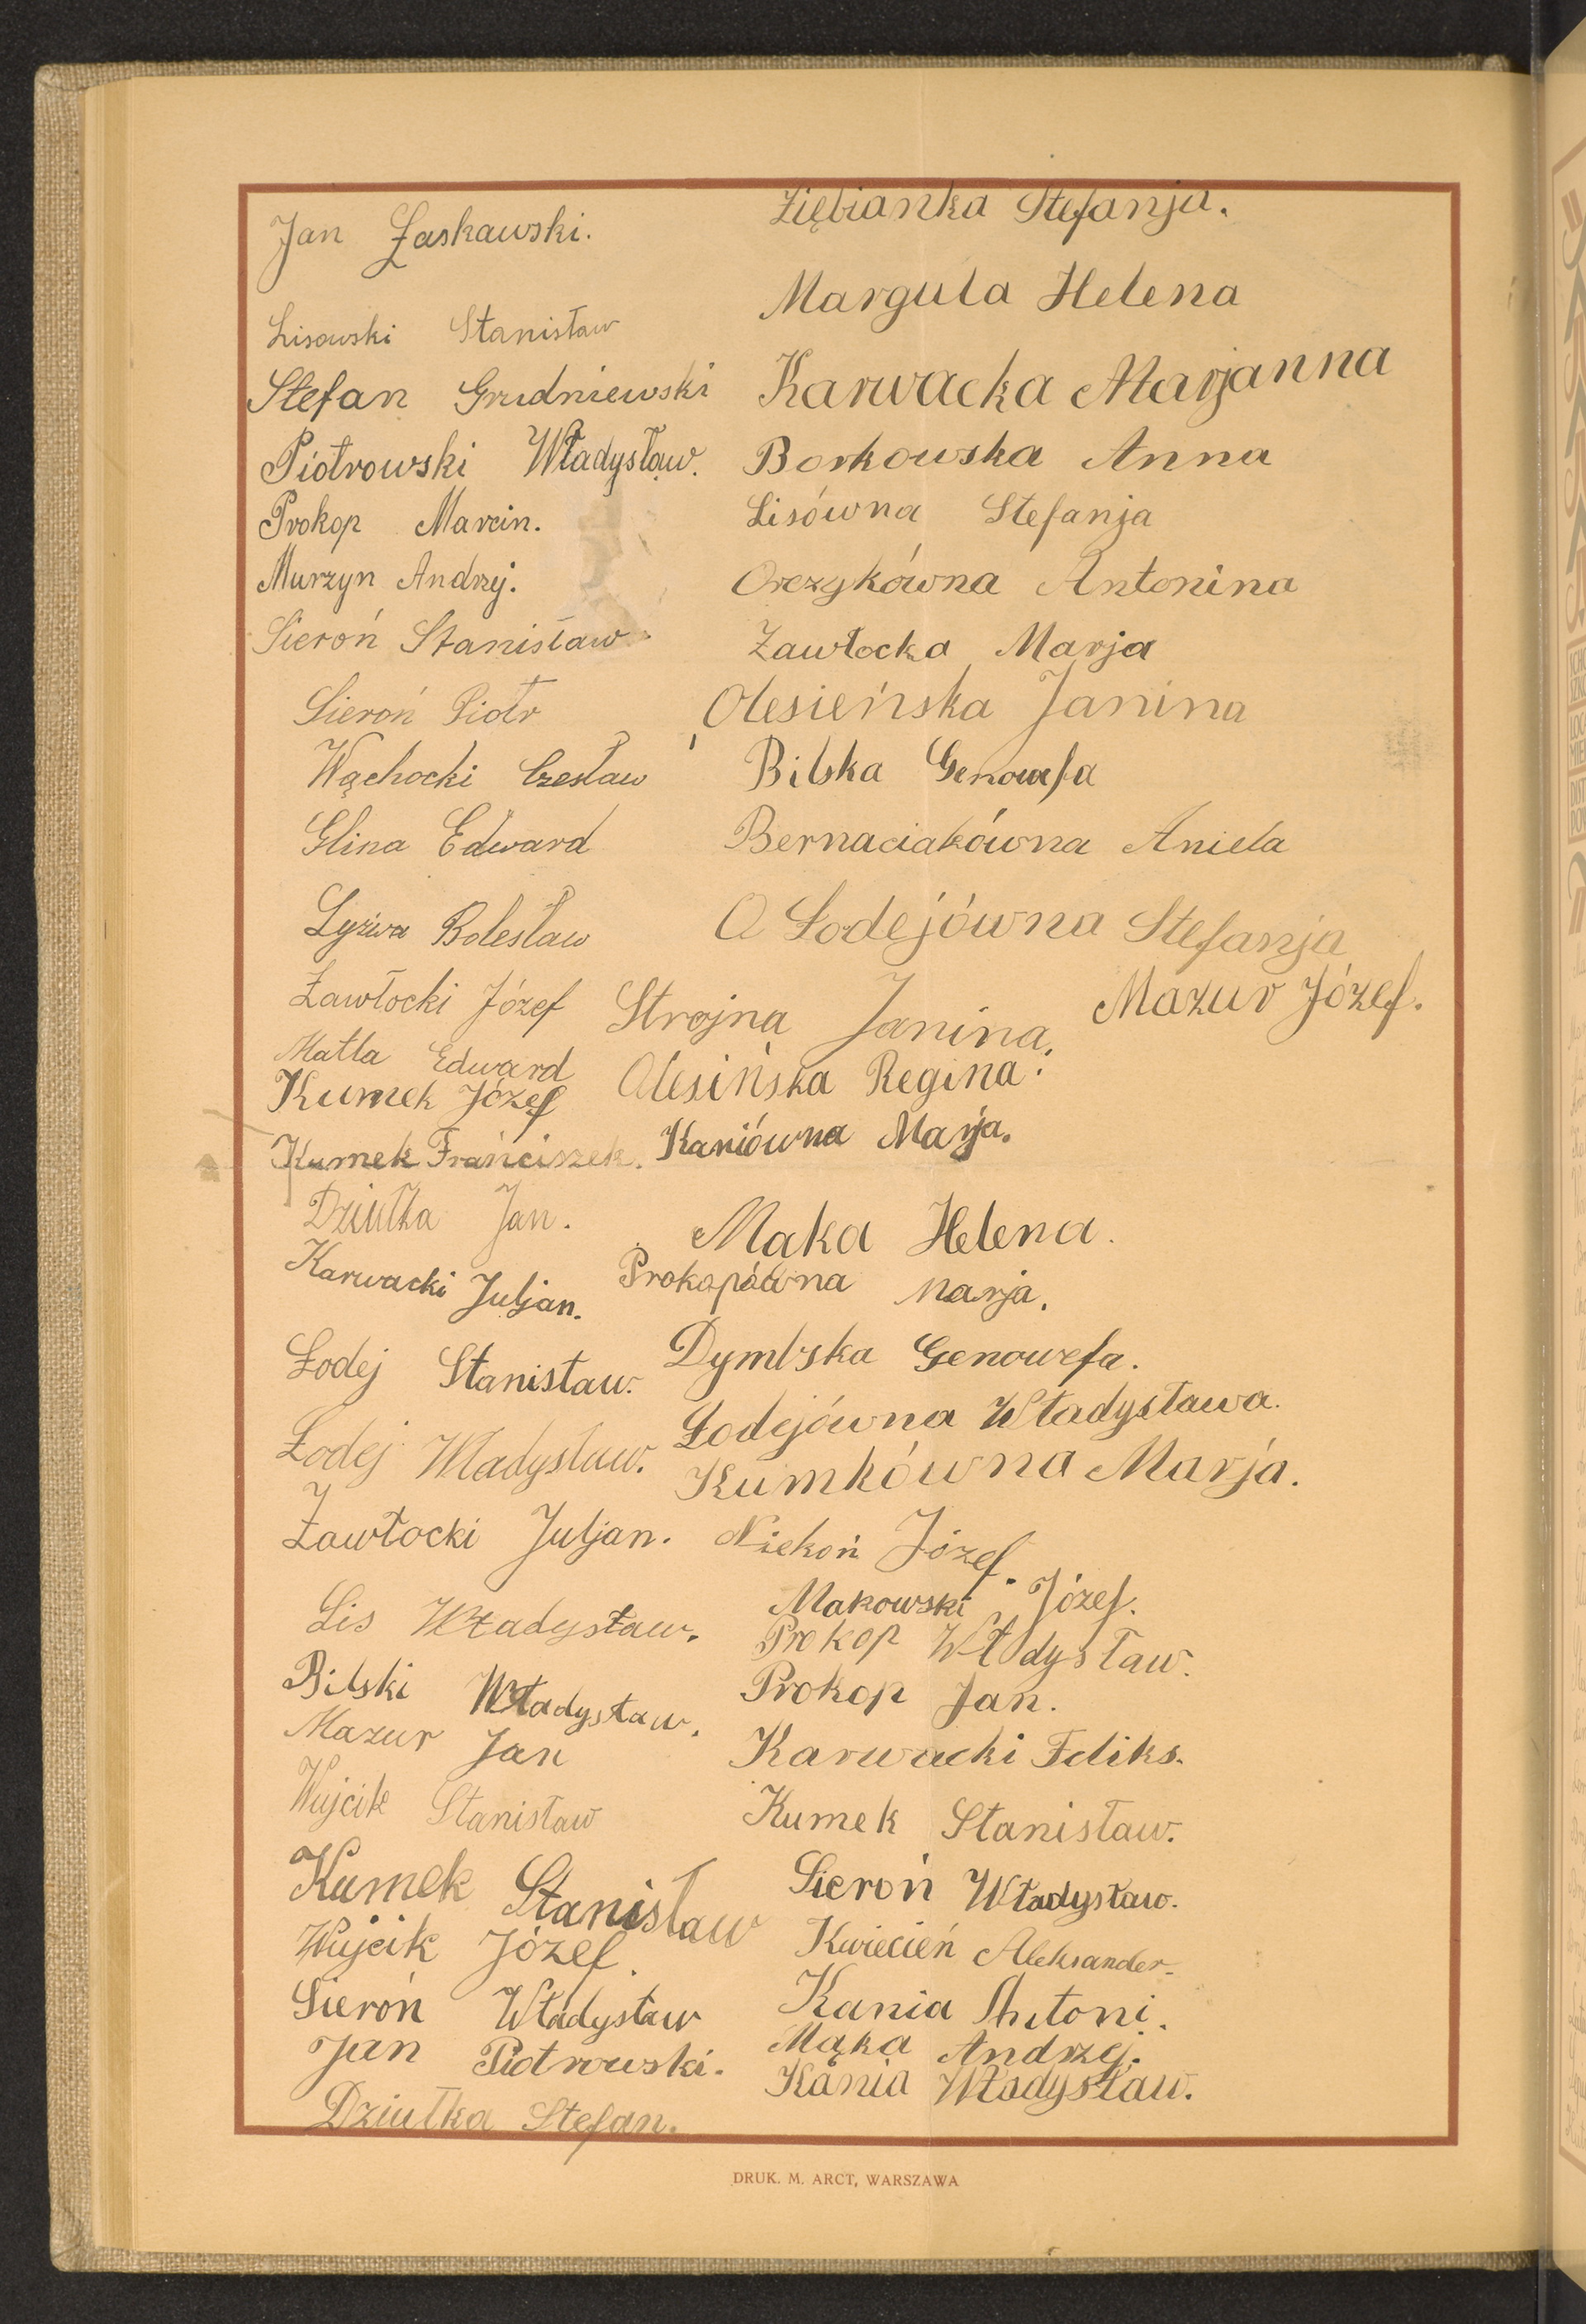 Jan Łaskawski.
Lisowski Stanisław
Stefan Grudniewski
Piotrowski Władysław.
Prokop Marcin.
Murzyn Andrzj.
Sieroń Stanisław
Sieroń Piotr
Wąchocki Czesław
Glina Edward
Łyżwa Bolesław
Zawłocki Józef
Matla Edward
Kumek Józef
Kumek Franciszek.
Dziułka Jan.
Karwacki Juljan.
Łodej Stanisław.
Łodej Władysław.
Zawłocki Juljan.
Lis Władysław.
Bilski Władysław.
Mazur Jan
Wujcik Stanisław
Kumek Stanisław
Wujcik Józef.
Sieroń Władysław
Jan Piotrowski.
Dziułka Stefan.
Ziębianka Stefanja.
Margula Helena
Karwacka Marjanna
Borkowska Anna
Lisówna Stefanja
Orczykówna Antonina
Zawłocka Marja
Olesieńska Janina
Bilska Genowefa
Bernaciakówna Aniela
O Łodejówna Stefanja
Strojna Janina.
Mazur Józef.
Olesińska Regina.
Kaniówna Marja.
Maka Helena.
Prokopówna Marja.
Dymbska Genowefa.
Łodejówna Władysława.
Kumkówna Marja.
Niekoń Józef.
Makowski Józef.
Prokop Władysław.
Prokop Jan.
Karwacki Feliks.
Kumek Stanisław.
Sieroń Władysław.
Kwiecień Aleksander.
Kania Antoni.
Mąka Andrzej.
Kania Władysław.
DRUK. M. ARCT, WARSZAWA